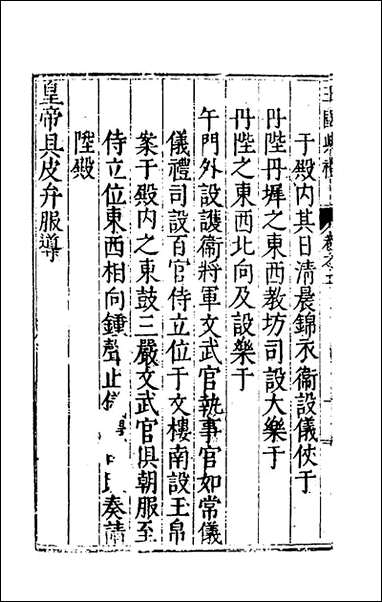 王國典禮 卷之五
于殿内其日清晨錦衣衞設儀仗于
丹陛丹墀之東西教坊司設大樂于
丹陛之東西北向及設樂于
午門外設護衞將軍文武官執事官如常儀
儀禮司設百官侍立位于文樓南設王帛
案于殿内之東鼓三嚴文武官俱朝服至
侍立位東西相向鍾聲止儀 奏請
陞殿
皇帝具皮弁服導